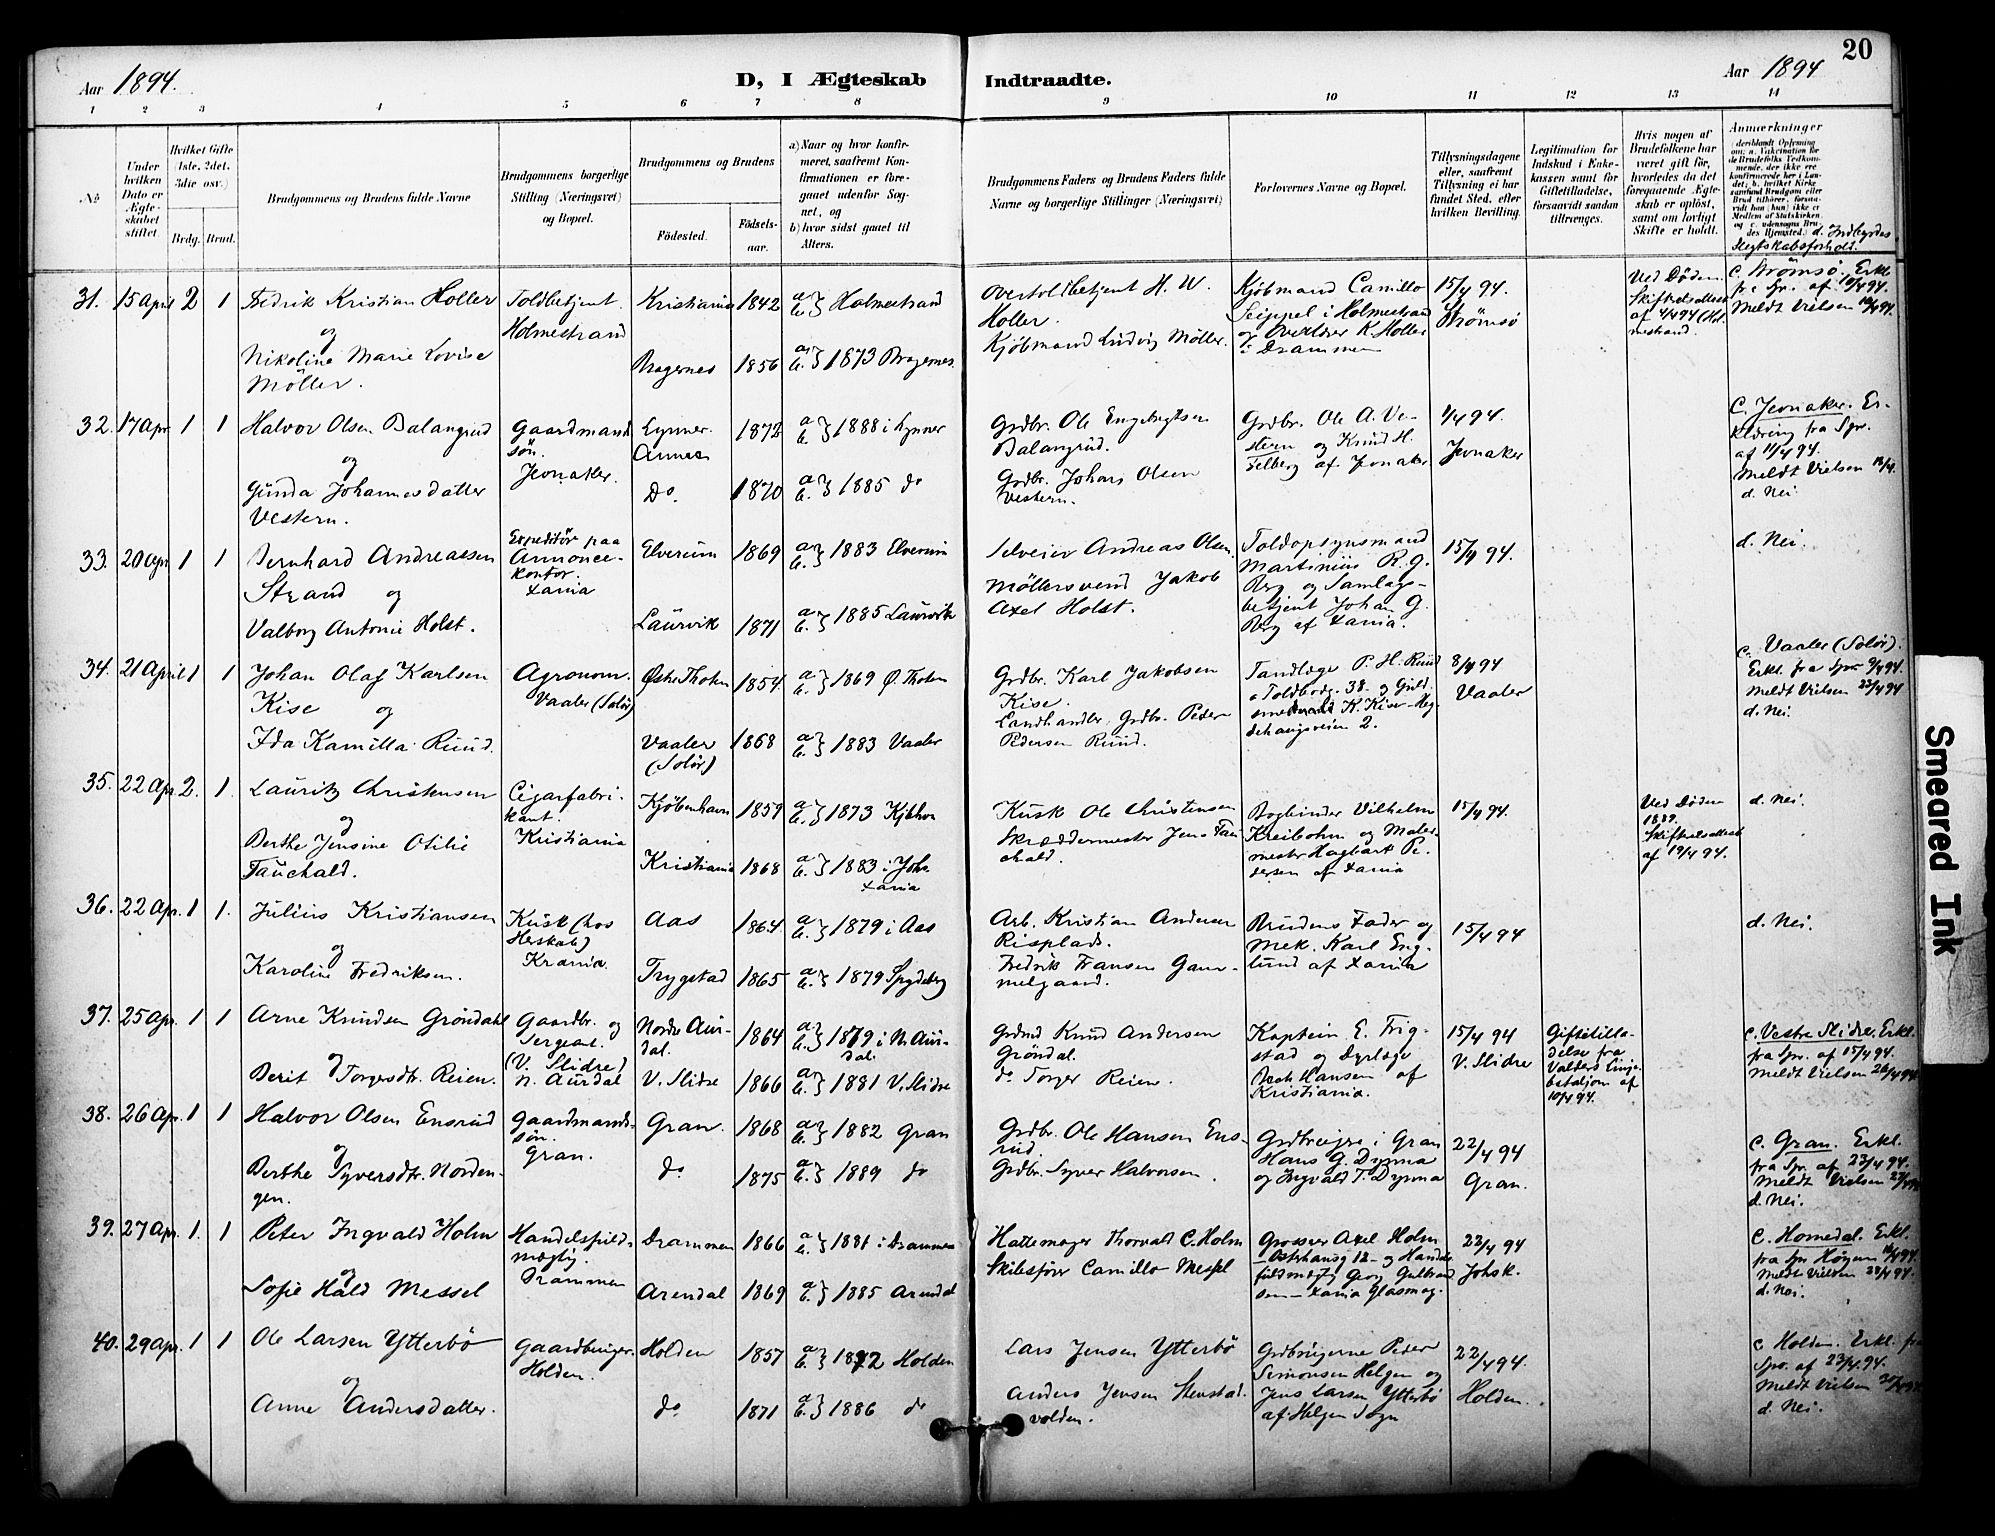 20
Aar 1894.
D, I Ægteskab Indtraadte.
Aar 1894
1 2 3 4 5 6 7 8 9 10 11 12 13 14
No
Under hvilken Dato er Ægteskabet stiftet
Hvilket Gifte (1ste, 2det, 3die osv.)
Brdg. Brud.
Brudgommens og Brudens fulde Navne
Brudgommens borgerlige Stilling (Næringsvei) og Bopæl.
Brudgommens og Brudens
Fødested.
Fødsels-aar.
a) Naar og hvor konfirmeret, saafremt Konfirmationen er foregaaet udenfor Sognet, og
b) hvor sidst gaaet til Alters.
Brudgommens Faders og Brudens Faders fulde Navne og borgerlige Stillinger (Næringsvei)
Forlovernes Navne og Bopæl.
Tillysningsdagene eller, saafremt Tillysning ei har fundet Sted, efter hvilken Bevilling.
Legitimation for Indskud i Enkekassen samt for Giftetilladelse, forsaavidt saadan tiltrænges.
Hvis nogen af Brudefolkene har været gift før, hvorledes da det foregaaende Ægteskab er opløst, samt om lovligt Skifte er holdt.
Anmærkninger
d. Indbyrdes Slegtskabsforhold.
31. 15 April 2 1 Fredrik Kristian Holler
og
Nikoline Marie Lovise
Möller.
Toldbetjent.
Holmestrand
Kristiania 1842 Holmestrand
Bragernes 1856 1873 Bragernes.
Overtoldbetjent H. W.
Holler.
Kjöbmand Ludvig Möller.
Kjöbmand Camillo
Seippel i Holmestrand
og Overlærer K. Holler
i Drammen
15/4 94.
Strömsö
Ved Døden
Skifteretsattest
af 4/4 94 (Holmestrand.
C. Strömsö. Erkl.
fra Spr. af 10/4 94.
Meldt Vielsen
32. 17 Apr. 1 1 Halvor Olsen Balangrud
og
Gunda Johannesdatter
Vestern.
Gaardmandssön.
Jevnaker.
Lynner Annex 1872 1888 i Lynner
Do. 1870 1885 do
Grdbr. Ole Engebregtsen
Balangrud.
Grdbr. Johans Olsen
Vestern.
Grdbr. Ole A. Vestern
og Knud H.
Felberg af Jevnaker
94.
Jevnaker
C. Jevnaker. Erklæring fra Spr.
af 11/4 94.
Meldt Vielsen
d. Nei.
33. 20 Apr. 1 1 Bernhard Andreassen
Strand og
Valborg Antonie Holst.
Expeditör paa
Annonce-kontor.
Xania
Elverum 1869 1883 Elverum
Laurvik 1871 1885 Laurvik
Selveier Andreas Olsen.
Möllersvend Jakob
Axel Holst.
Toldopsynsmand
Martinius R. G.
Berg og Samlagsbetjent Johan G.
Berg af Xania.
15/4 94.
d. Nei.
34. 21 April 1 1 Johan Olaf Karlsen
Kise og
Ida Kamilla Ruud.
Agronom.
Vaaler (Solör)
Østre Thoten 1854. 1869 Ø. Thoten
Vaaler (Solör) 1868 1883 Vaaler
Grdbr. Karl Jakobsen
Kise.
Landhandler, Grdbr. Peder
Pedersen Ruud.
Tandlæge P. H. Ruud
Toldbodg. 38 og Guldsmed K. Kise Hegdehaugsveien 2.
8/4 94
Vaaler
C. Vaaler (Solör).
Erkl. fra Spr. 9/4 94.
Meldt Vielsen 23/4 94
d. Nei.
35. 22 Apr. 2. 1. Lauritz Christensen
og
Berthe Jensine Otilie
Fauchald.
Cigarfabrikant.
Kristiania
Kjöbenhavn 1859 1873 Kjbhvn
Kristiania 1868 1883 i Johs. Xania
Kusk Ole Christensen
Skræddermester Jens Fauchald.
Bogbinder Vilhelm
Kreibohm og Malermester Hagbart Pedersen af Xania
15/4 94.
Ved Døden
1889.
Skifteretsattest
af 19/4 94.
d. Nei.
36. 22 Apr. 1 1. Julius Kristiansen
og
Karoline Fredriksen.
Kusk (hos
Herskab)
Krania.
Aas 1864. 1879 i Aas
Trygstad 1865 1879 Spydeberg
Arb. Kristian Andersen
Risplads.
Fredrik Fransen Gammelgaard.
Brudens Fader og
Mek. Karl Englund af Xania
15/4 94
d. Nei.
37. 25 Apr. 1 1 Arne Knudsen Gröndahl
og
Berit Torgersdtr. Reien.
Gaardbr. og
Sergeant.
(V. Slidre)
N. Aurdal
Nordre Aurdal. 1864 1879 i N. Aurdal.
V. Slidre 1866 1881 V. Slidre
Grdmd Knud Andersen
Gröndal.
do Torger Reien.
Kaptein E. Frigstad og Dyrlæge
Bech Hansen af
Kristiania.
15/4 94
V. Slidre
Giftetilladelse fra
Valders Linjebataljon af
10/4 94.
C. Vestre Slidre. Erkl.
fra Spr. af 15/4 94.
Meldt Vielsen 26/4 94.
38. 26 Apr. 1 1 Halvor Olsen Ensrud
og
Berthe Syversdtr. Nordengen.
Gaardmandssön.
Gran.
Gran. 1868 1882 Gran
do 1875 1889 do
Grdbr. Ole Hansen Ensrud
Grdbr. Syver Halvorsen.
Grdbrugere i Gran
Hans G. Dynna
og Ingvald T. Dynna
22/4 94
Gran.
C. Gran. Erkl.
fra Spr. af 23/4 94.
Meldt Vielsen
d. Nei.
39. 27 Apr. 1. 1 Peter Ingvald Holm
og
Sofie Hald Messel
Handelsfuldmægtig.
Drammen
Drammen 1866 1881 i Drammen
Arendal 1869 1885 Arendal
Hattemager Thorvald C. Holm
Skibsförer Camillo Messel
Grosser Axel Holm
Østerhausg 12 og Handelsfuldmægtig Georg Gulbrandsen Xania Glasmag.
22/4 94
Johsk.
C. Homedal. Erkl.
fra Spr. Høyum
Meldt Vielsen 28/4 94.
d. Nei.
40. 29 Apr. 1 1 Ole Larsen Ytterbö
og
Anne Andersdatter.
Gaardbruger.
Holden.
Holden 1857 1872 Holden
do 1871 1886 do
Lars Jensen Ytterbö
Anders Jensen Stenstadvolden.
Grdbrugerne Peder
Simonsen Helgen og
Jens Larsen Ytterbö
af Helgen Sogn
22/4 94.
Holden.
C Holden. Erkl. fra
Spr. af 23/4 94.
Meldt Vielsen
d. Nei.
Smeared Ink